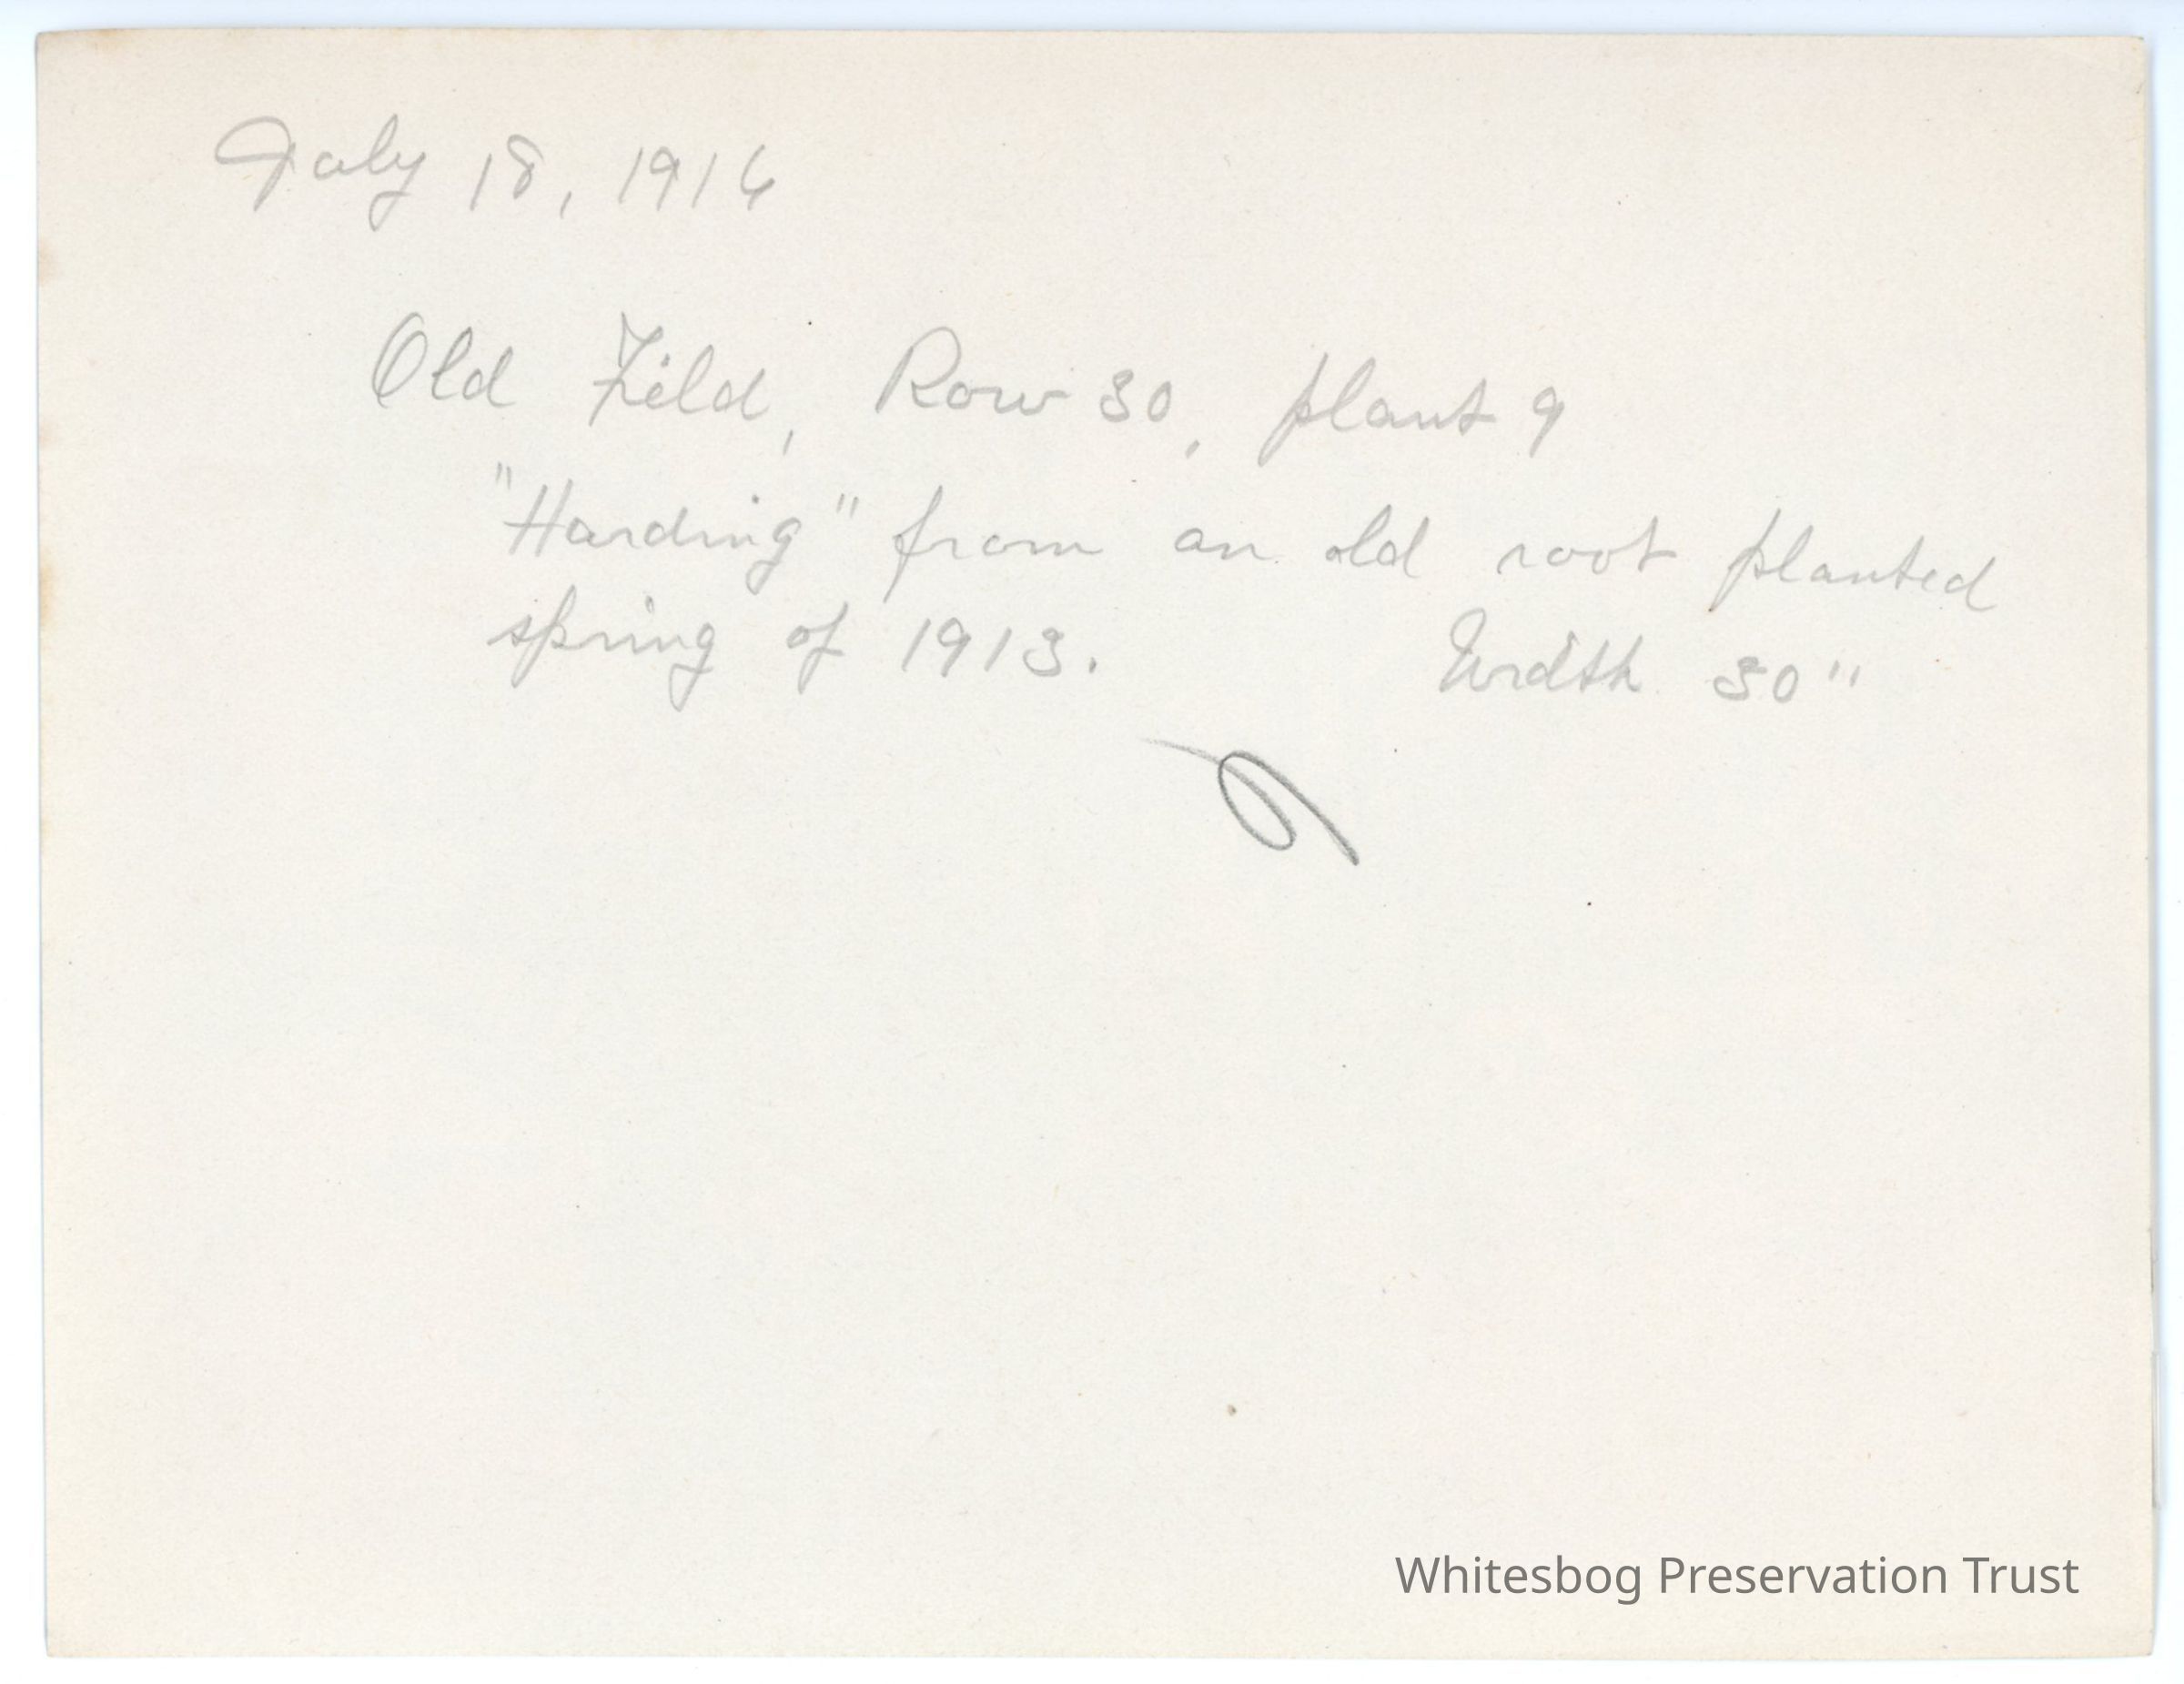 July 18, 1916
Old Field, Row 30, plant 9
"Harding" from an old root planted
spring of 1913. Width 30"
Whitesbog Preservation Trust